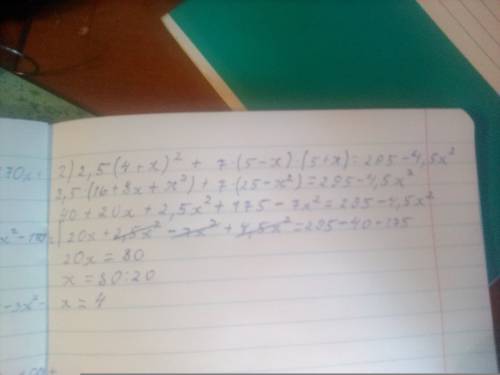 2) 2,5(4+x)² + 7·(5-x)·(5+x)=295-4,5x²
2,5(16+8x+x²)+7·(25-x²)=295-4,5x²
40+20x+2,5x²+175-7x²=295-4,5x²
20x+2,5x²-7x²+4,5x²=295-40-175
20x=80
x=80:20
x=4